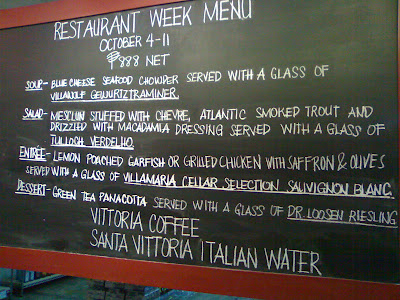 RESTAURANT WEEK MENU
OCTOBER 4-11
₱888 NET
SOUP- BLUE CHEESE SEAFOOD CHOWDER SERVED WITH A GLASS OF
GEWURTZTRAMINER.
SALAD- MESCLUN STUFFED WITH CHEVRE, ATLANTIC SMOKED TROUT AND
DRIZZLED WITH MACADAMIA DRESSING SERVED WITH A GLASS OF
TULLOCH VERDELHO.
ENTRÉE- LEMON POACHED GARFISH OR GRILLED CHICKEN WITH SAFFRON & OLIVES
SERVED WITH A GLASS OF VILLAMARIA CELLAR SELECTION SAUVIGNON BLANC.
DESSERT- GREEN TEA PANACOTTA SERVED WITH A GLASS OF DR. LOOSEN RIESLING
VITTORIA COFFEE
SANTA VITTORIA ITALIAN WATER